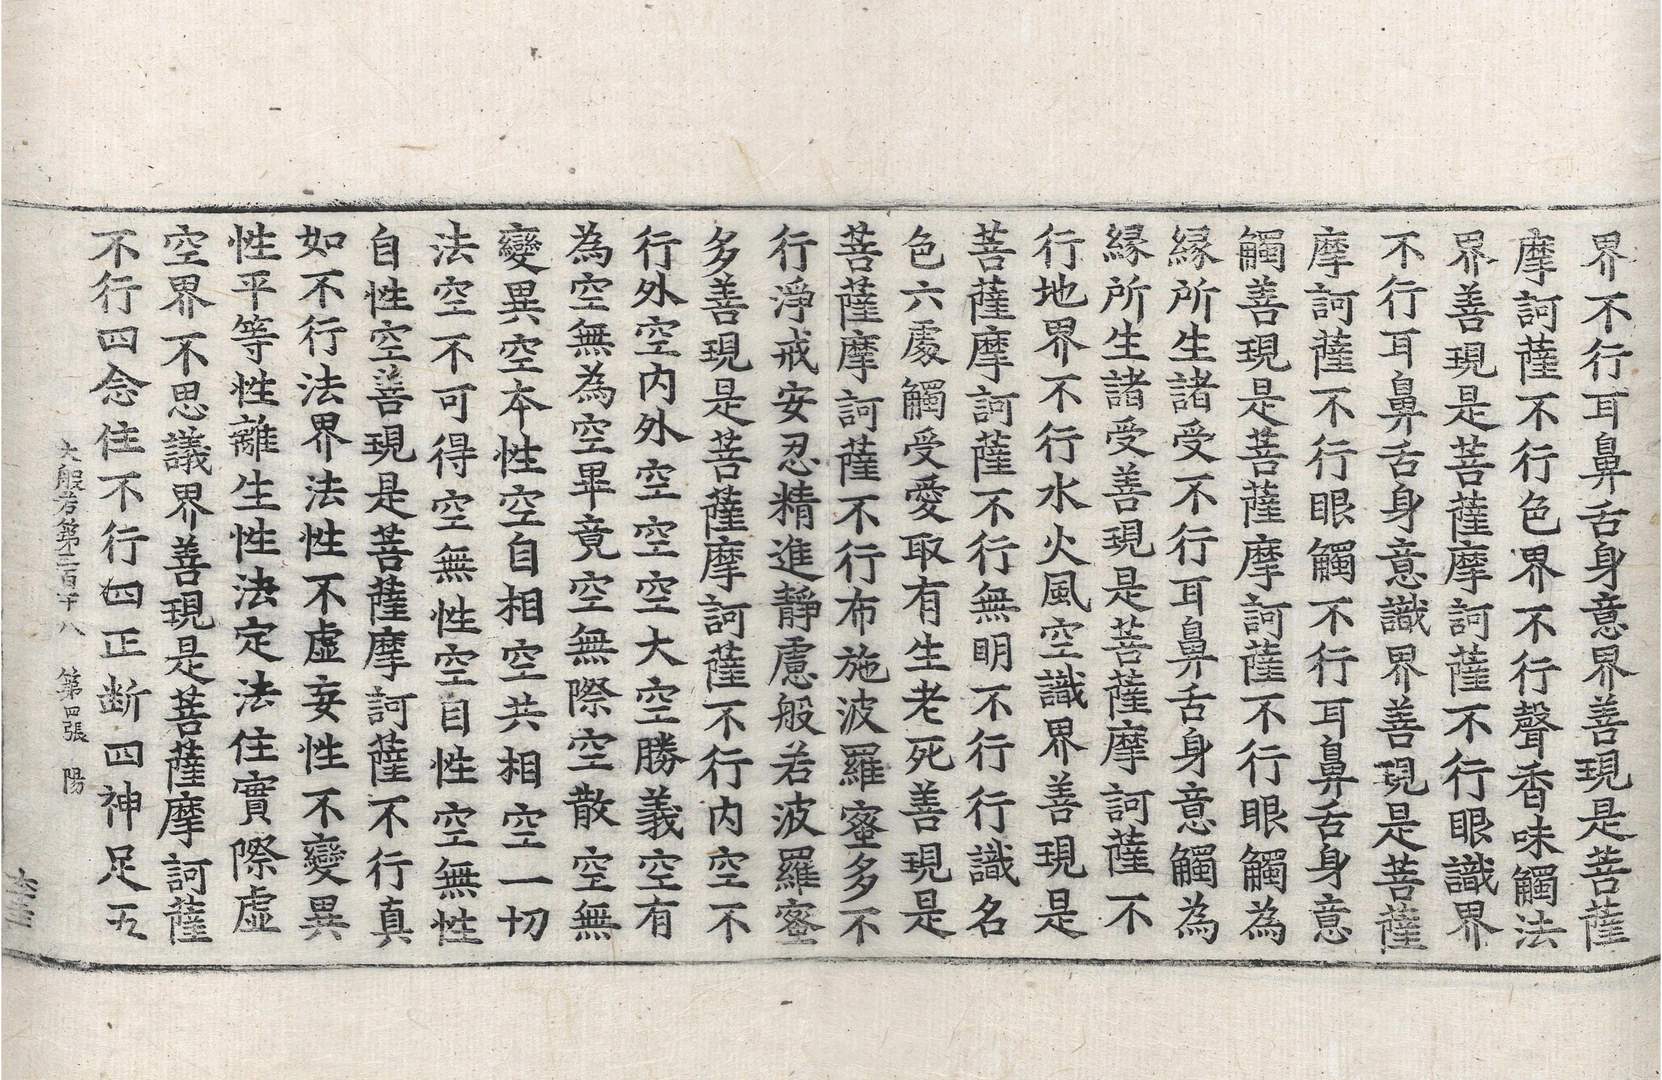 界不行耳鼻舌身意界善現是菩薩
摩訶薩不行色界不行聲香味觸法
界善現是菩薩摩訶薩不行眼識界
不行耳鼻舌身意識界善現是菩薩
摩訶薩不行眼觸不行耳鼻舌身意
觸善現是菩薩摩訶薩不行眼觸為
緣所生諸受不行耳鼻舌身意觸為
緣所生諸受善現是菩薩摩訶薩不
行地界不行水火風空識界善現是
菩薩摩訶薩不行無明不行行識名
色六處觸受愛取有生老死善現是
菩薩摩訶薩不行布施波羅蜜多不
行淨戒安忍精進靜慮般若波羅蜜
多善現是菩薩摩訶薩不行內空不
行外空內外空空空大空勝義空有
為空無為空畢竟空無際空散空無
變異空本性空自相空共相空一切
法空不可得空無性空自性空無性
自性空善現是菩薩摩訶薩不行真
如不行法界法性不虛妄性不變異
性平等性離生性法定法住實際虛
空界不思議界善現是菩薩摩訶薩
不行四念住不行四正断四神足五
大般若第三百 八 第四張 陽